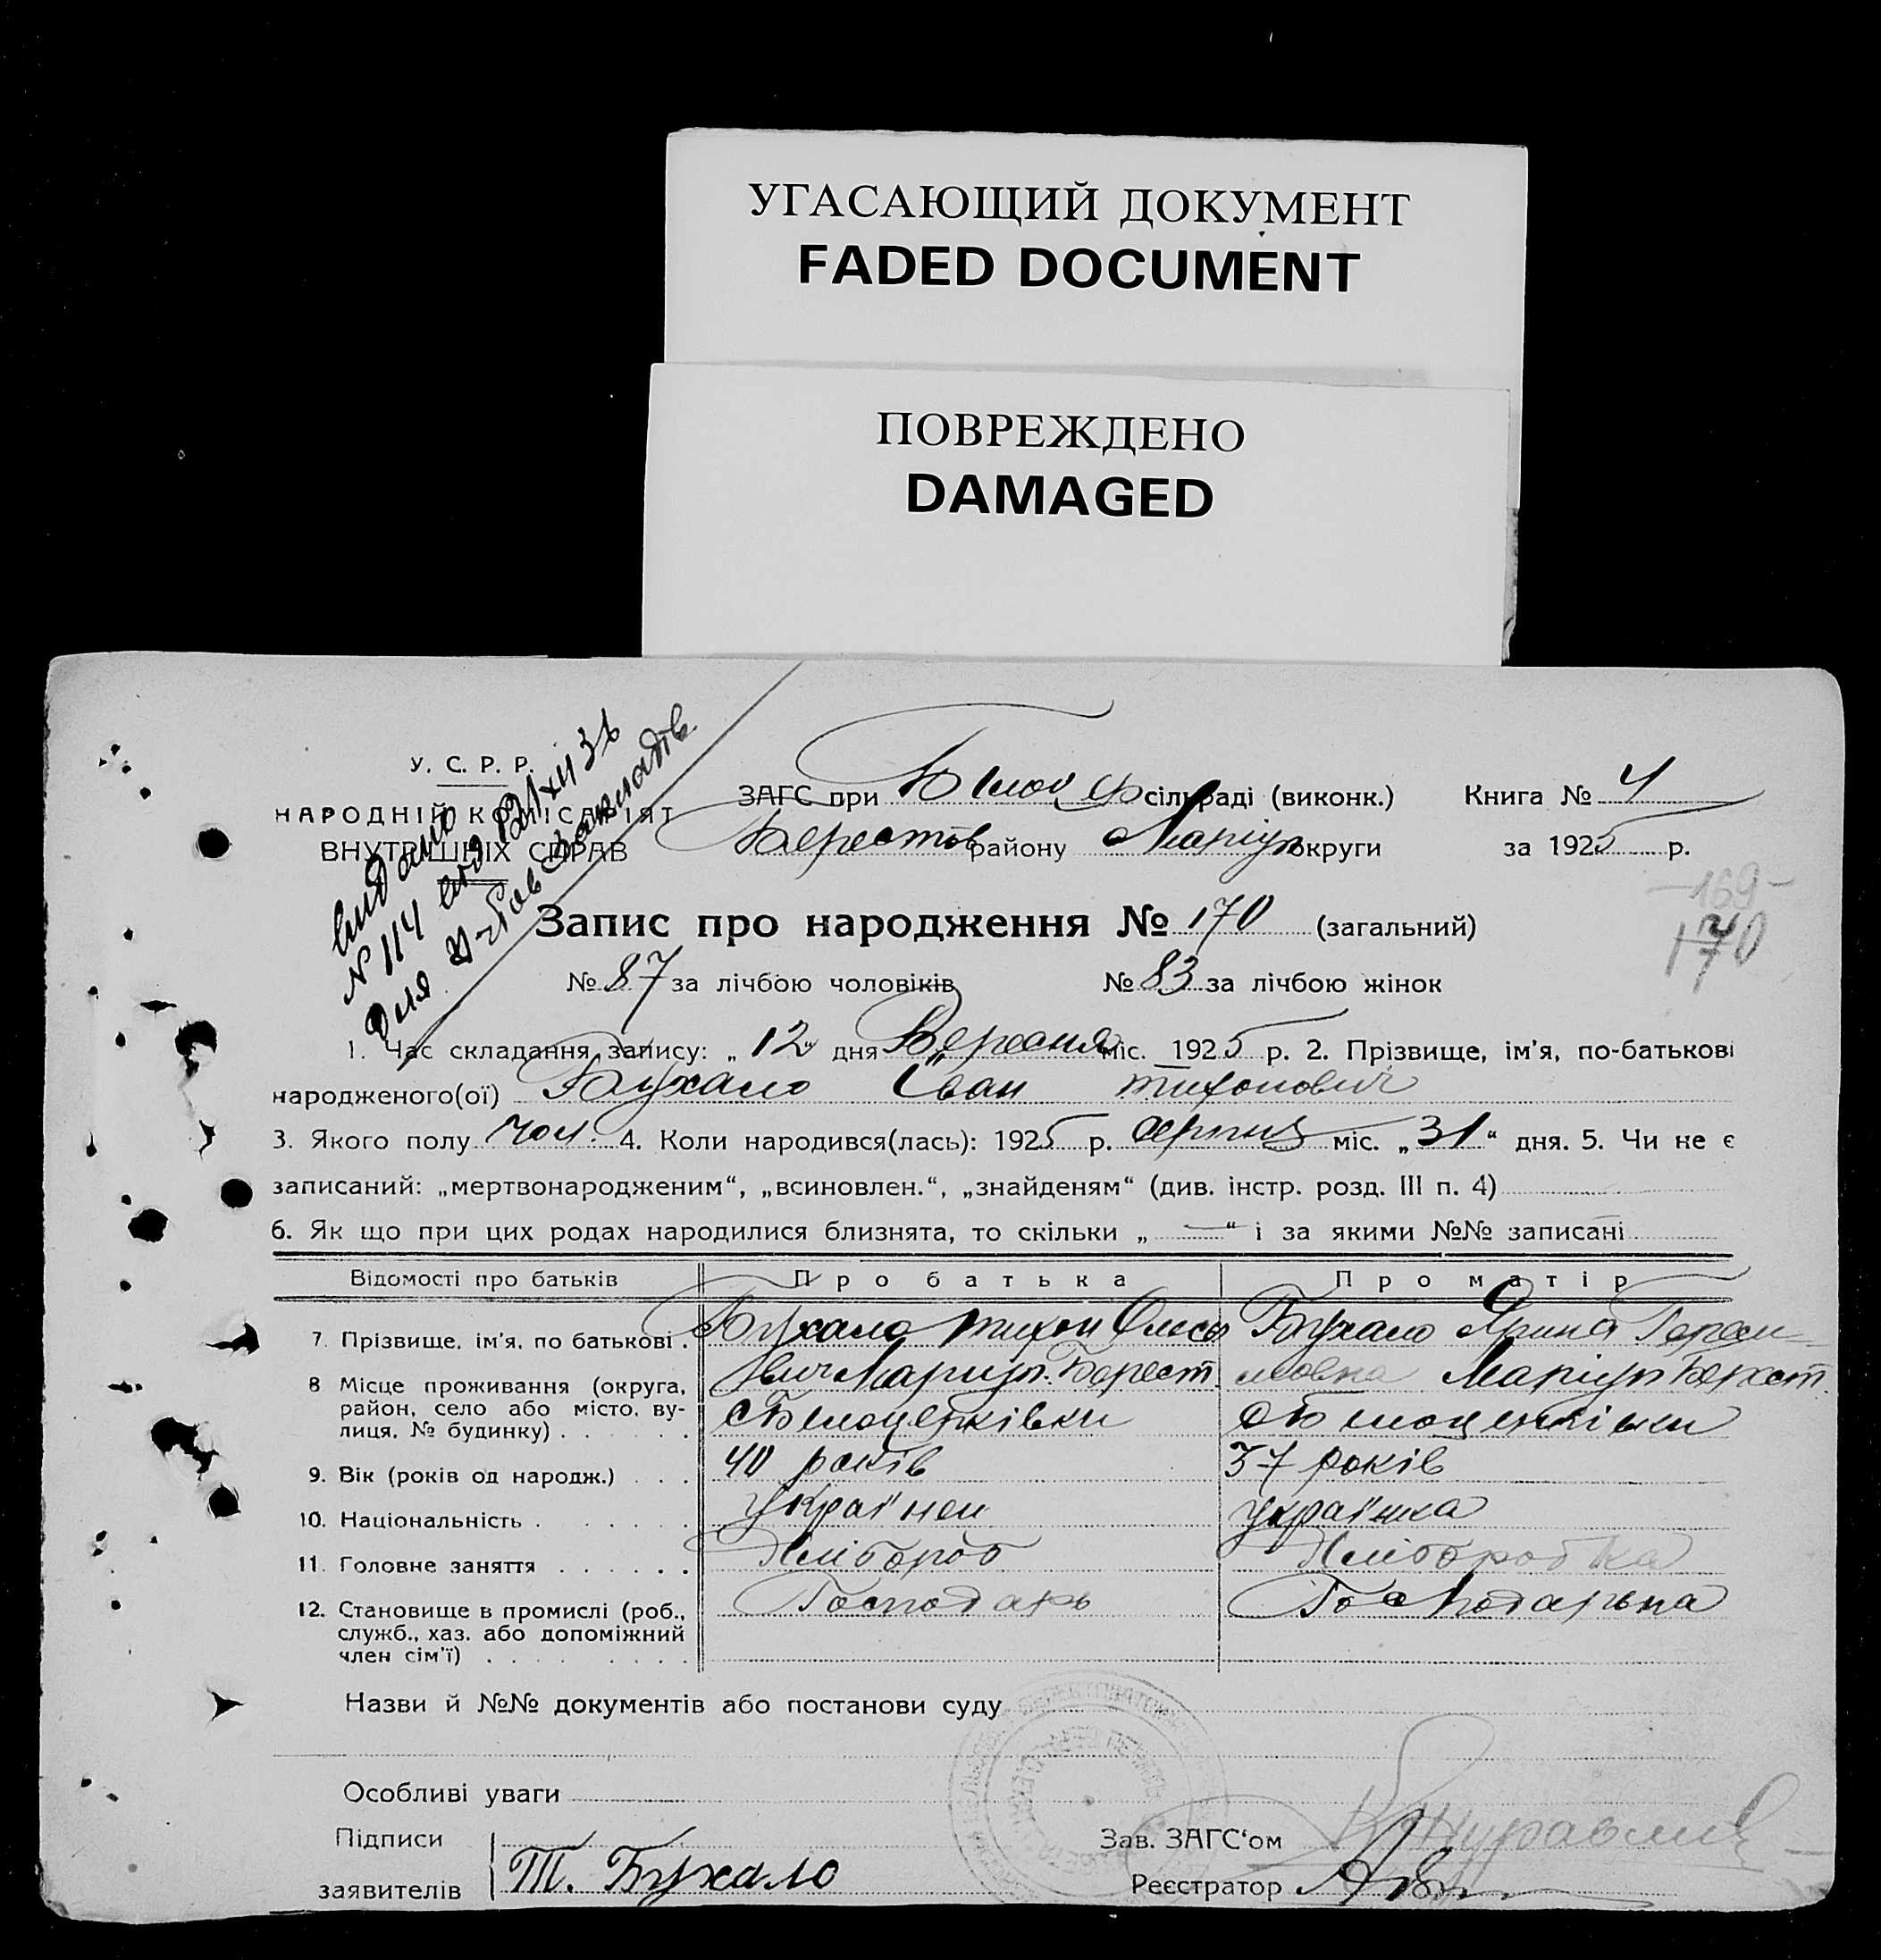 УГАСАЮЩИЙ ДОКУМЕНТ
FADED DOCUMENT
ПОВРЕЖДЕНО
DAMAGED
У. С. Р. Р.
НАРОДНІЙ КОМІСАРІЯТ
ВНУТРІШНІХ СПРАВ
видано
№ 114 21 XII 3
для
ЗАГС при сільраді (виконк.) Книга № 4
Берестів району Маріуп округи за 1925 р.
169
170
Запис про народження № 170 (загальний)
№ 87 за лічбою чоловіків № 83 за лічбою жінок
1. Час складання запису: „ 12 “ дня Вересня міс. 1925 р. 2. Прізвище, ім'я, по-батькові
народженого(ої) Бухало Іван Тихонович
3. Якого полу чол. 4. Коли народився(лась): 1925 р. серпня міс. „ 31 “ дня. 5. Чи не є
записаний: „мертвонародженим“, „всиновлен.“, „знайденям“ (див. інстр. розд. III п. 4)
6. Як що при цих родах народилися близнята, то скільки „ — “ і за якими №№ записані
Відомості про батьків Про батька Про матір
7. Прізвище, ім'я, по батькові . Бухало Тихон Бухало Ярина Гераси
8 Місце проживання (округа, Маріуп. Берест. мовна Маріуп Берест.
район, село або місто, ву- с Білоцерківки с Білоцерківки
лиця, № будинку) . . . . . .
9. Вік (років од народж.) . . . 40 років 37 років
10. Національність . . . . . . українец українка
11. Головне заняття . . . . . . Хлібороб Хліборобка
12. Становище в промислі (роб., Господарь Господарька
служб., хаз. або допоміжний
член сім'ї) . . . . . . . . .
Назви й №№ документів або постанови суду
Особливі уваги
Підписи
заявителів Т. Бухало
Зав. ЗАГС‘ом
Реєстратор